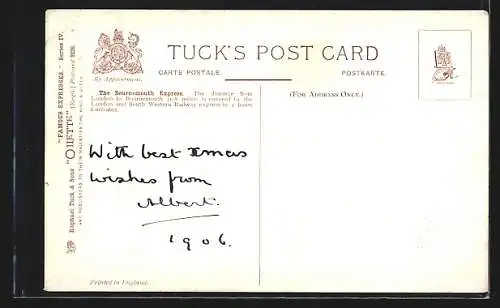 TUCK'S POST CARD
By Appointment.
CARTE POSTALE.
POSTKARTE.
(FOR ADDRESS ONLY.)
The Bournemouth Express. The distance from
London to Bournemouth, 108 miles, is covered by the
London and South Western Railway express in 2 hours
6 minutes.
With best xmas
wishes from
Albert.
1906.
Printed in England.
"FAMOUS EXPRESSES." Series IV.
Raphael Tuck & Sons' "OILETTE" [Regd.] Postcard
ART PUBLISHERS TO THEIR MAJESTIES THE KING & QUEEN